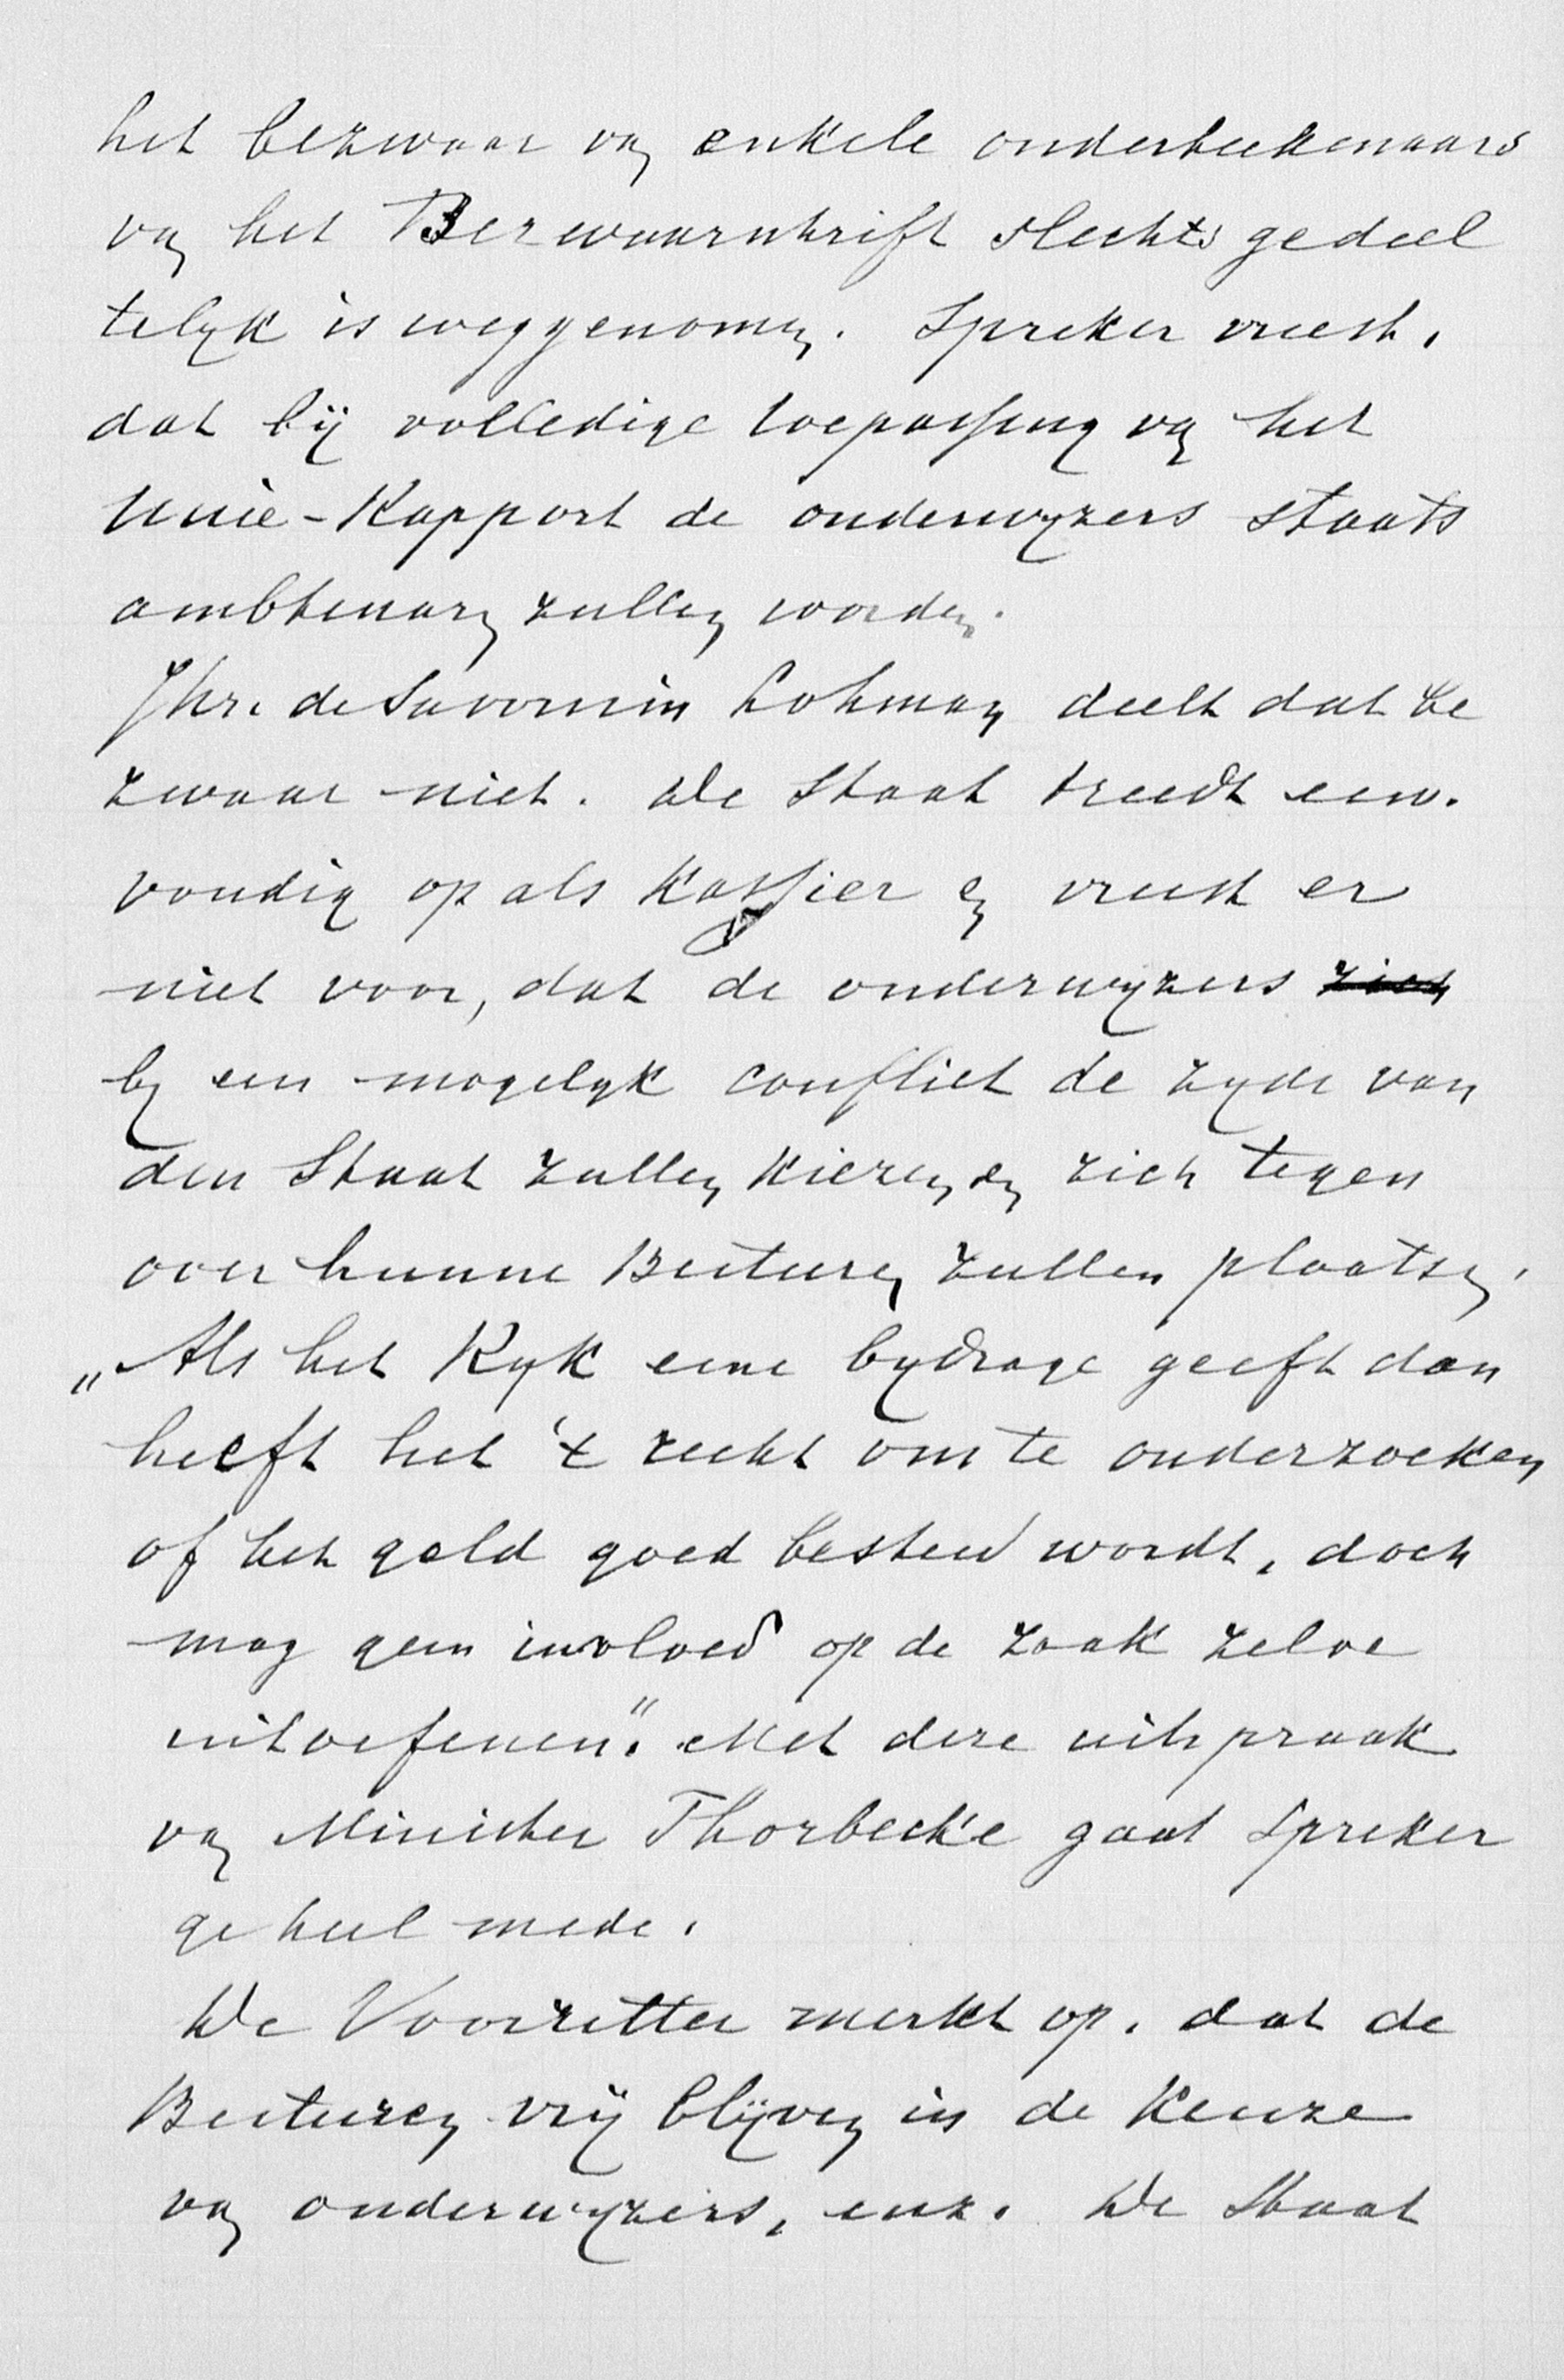 het bezwaar van enkele onderteekenaars
van het Bezwaarschrift slechts gedeel
telyk is weggenomen. Spreker vreest,
dat bij volledige toepassing van het
Unie-Rapport de onderwyzers staats
ambtenaren zullen worden.
Jhr. de Savornin Lohman deelt dat be
zwaar niet. De Staat treedt een.
voudig op als kassier en vreest er
niet voor, dat de onderwyzers zich
by een mogelyk conflict de zyde van
den Staat zullen kiezen en zich tegen
over hunne Besturen zullen plaatsen.
„Als het Ryk eene bydrage geeft dan
heeft het 't recht om te onderzoeken
of het geld goed besteed wordt, doch
mag geen invloed op de zaak zelve
uitoefenen." Met deze uitspraak
van Minister Thorbecke gaat Spreker
geheel mede.
De Voorzitter merkt op, dat de
Besturen vrij blijven in de keuze
van onderwyzers, enz. De Staat